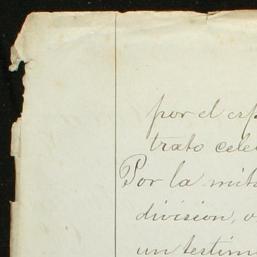 por el esp
trato cele
Por la mit
division, o
un testim